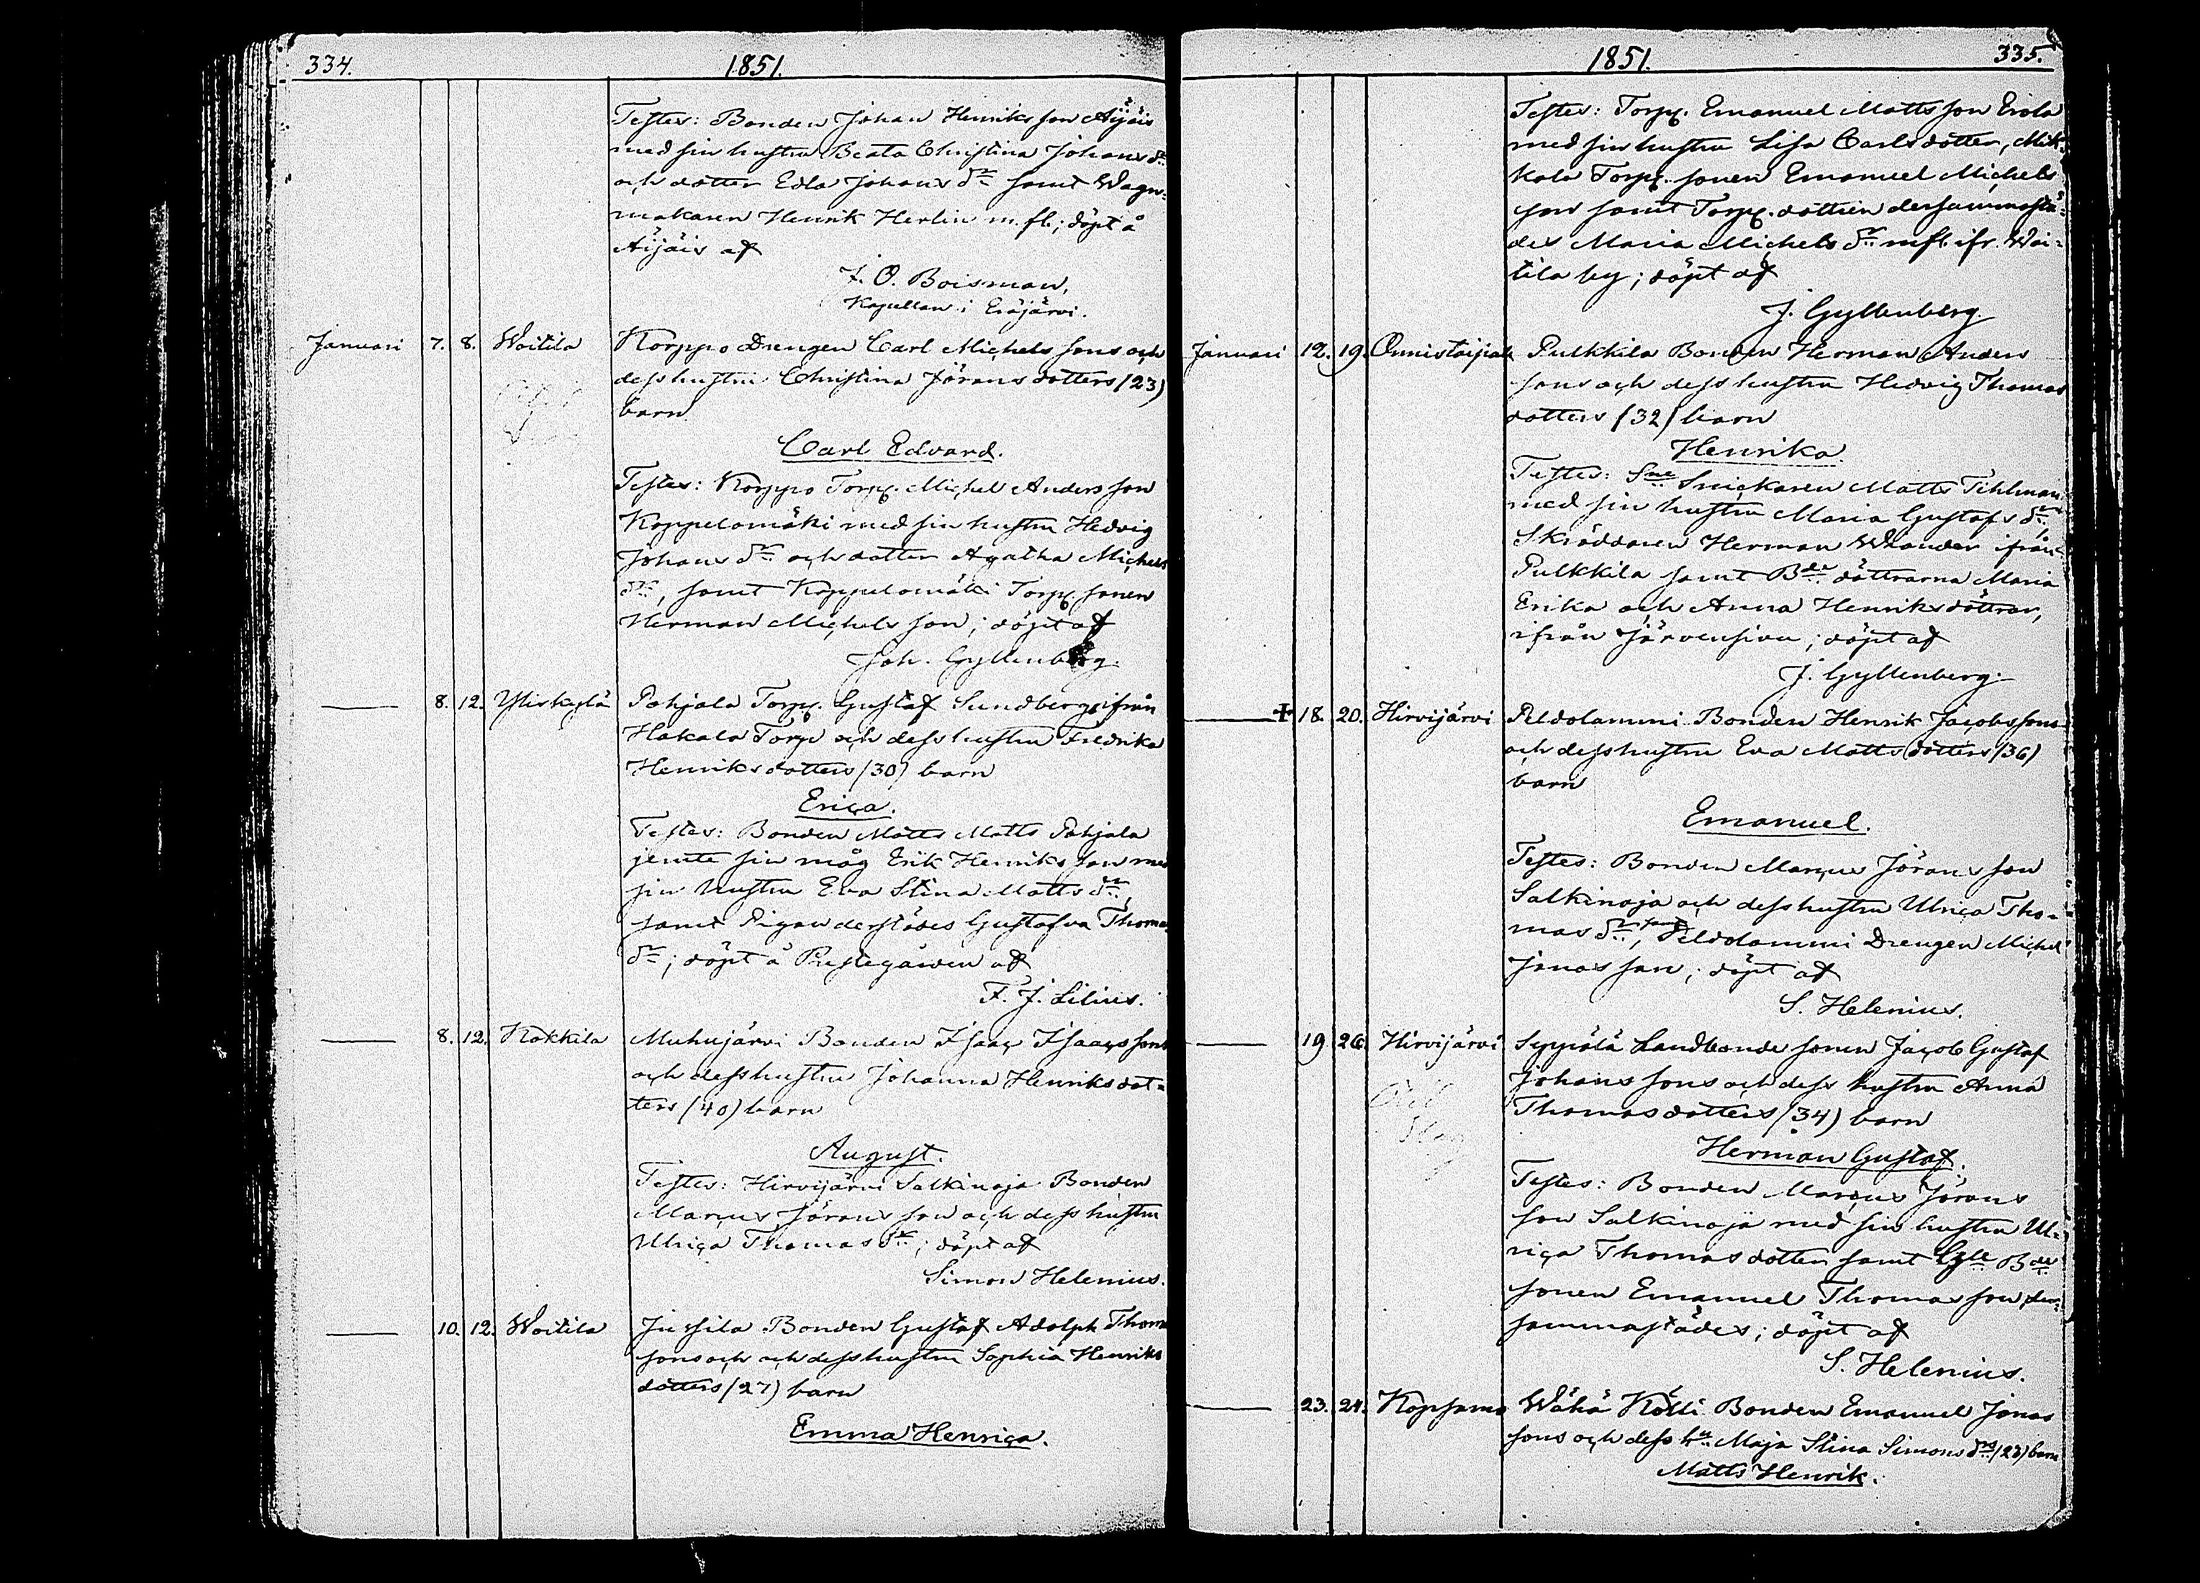 334.
1851.
Testes: Bonden Johan Henriksson Äijäis
med sin hustru Beata Christina Johans dr
och dotter Edla Johans dr samt Wagn-
makaren Henrik Herlin m.fl.; döpt å
Äijäis af
F. O. Boisman,
Kapellan i Eräjärvi.
Januari 7. 8. Woitila Korppo Drengen Carl Michelssons och
dess hustru Christina Jöransdotters (23)
barn
Carl Edvard.
Testes: Korppo Torp. Michel Andersson
Koppelomäki med sin hustru Hedvig
Johans dr och dotter Agatha Michels
dr, samt Koppelomäki Torp. sonen
Herman Michelsson; döpt af
Joh. Gyllenberg.
— 8. 12. Yliskylä Pohjala Torp. Gustaf Sundberg ifrån
Hakala Torp och dess hustru Fredrika
Henriksdotters (30) barn
Erica.
Testes: Bonden Matts Matts Pohjala
jemte sin måg Erik Henriksson med
sin hustru Eva Stina Matts dr,
samt Pigan derstädes Gustafva Thomas
dr; döpt å Prestegården af
F. J. Lilius.
— 8. 12. Rokkila Muhujärvi Bonden Isaac Isaacssons
och dess hustru Johanna Henriksdot-
ters (40) barn
August.
Testes: Hirvijärvi Salkinoja Bonden
Marcus Jöransson och dess hustru
Ulrica Thomas dr; döpt af
Simon Helenius.
— 10. 12. Woitila Jussila Bonden Gustaf Adolph Thoms
sons och och dess hustru Sophia Henriks
dotters (27) barn
Emma Henrica.
1851.
335.
Testes: Torp. Emanuel Mattsson Erola
med sin hustru Lisa Carlsdotter, Mik-
kola Torp. sonen Emanuel Michels
son samt Torp. dottren dersammastä-
des Maria Michels dr m.fl. ifr. Woi-
tila by; döpt af
J. Gyllenberg.
Januari 12. 19. Onnistaipale Pulkkila Bonden Herman Anders
sons och dess hustru Hedvig Thomas
dotters (32) barn
Henrika.
Testes: Sne Snickaren Matts Tihlman
med sin hustru Maria Gustafs dr,
Skräddaren Herman Wander ifrån
Pulkkila samt Bde döttrarna Maria
Erika och Anna Henriksdöttrar,
ifrån Järvensivu; döpt af
J. Gyllenberg.
— + 18. 20. Hirvijärvi Peldolammi Bonden Henrik Jacobssons
och dess hustru Eva Mattsdotters (36)
barn
Emanuel.
Testes: Bonden Marcus Jöransson
Salkinoja och dess hustru Ulrica Tho-
mas dr, samt Peldolammi Drengen Michel
Jonasson; döpt af
S. Helenius.
— 19 26. Hirvijärvi Seppälä Landbonde sonen Jacob Gustaf
Johanssons och dess hustru Anna
Thomasdotters (34) barn
Herman Gustaf.
Testes: Bonden Marcus Jörans
son Salkinoja med sin hustru Ul-
rica Thomasdotter samt Bde
sonen Emanuel Thomasson der-
sammastädes; döpt af
S. Helenius.
— 23. 24. Kopsamo Wähä Kölli Bonden Emanuel Jonas
sons och dess hu Maja Stina Simons drs (23) barn
Matts Henrik.